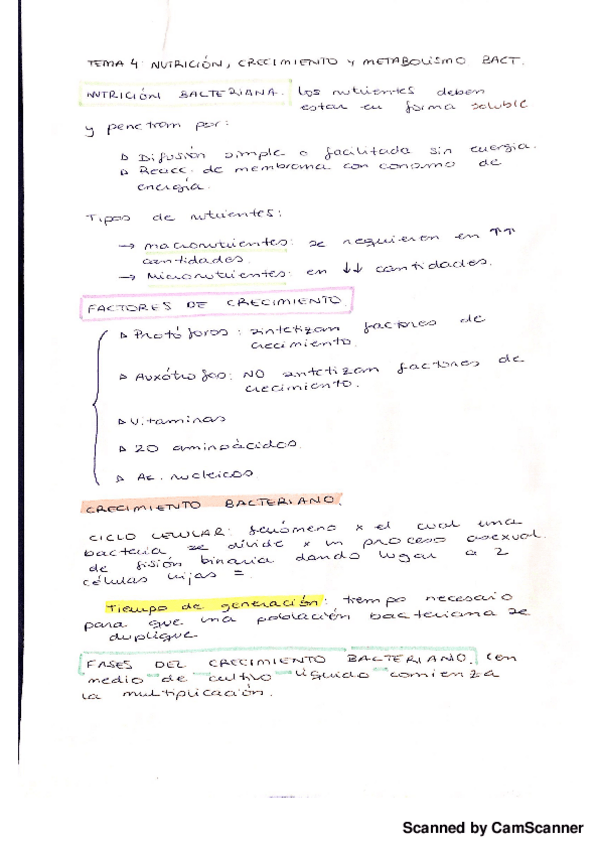 TEMA 4: NUTRICIÓN, CRECIMIENTO Y METABOLISMO BACT.
NUTRICIÓN BACTERIANA. los nutrientes deben
estar en forma soluble
y penetram por:
▷ Difusión simple o facilitada sin energía.
▷ Reacc. de membrama con consumo de
energía.
Tipos de nutrientes:
→ macronutrientes: se requieren en ↑↑
cantidades.
→ Micronutrientes: en ↓↓ cantidades.
FACTORES DE CRECIMIENTO.
▷ Protóforos: sintetizam factores de
crecimiento.
▷ Auxótrofos: NO sintetizam factores de
crecimiento.
▷ Vitaminas
▷ 20 aminoácidos.
▷ Ac. nucleicos
CRECIMIENTO BACTERIANO.
CICLO CELULAR: fenómeno x el cual una
bacteria se divide x un proceso asexual
de fisión binaria dando lugar a 2
células hijas =.
Tiempo de generación: tiempo necesario
para que una población bacteriana se
duplique
FASES DEL CRECIMIENTO BACTERIANO. (en
medio de cultivo líquido comienza
la multiplicación.
Scanned by CamScanner